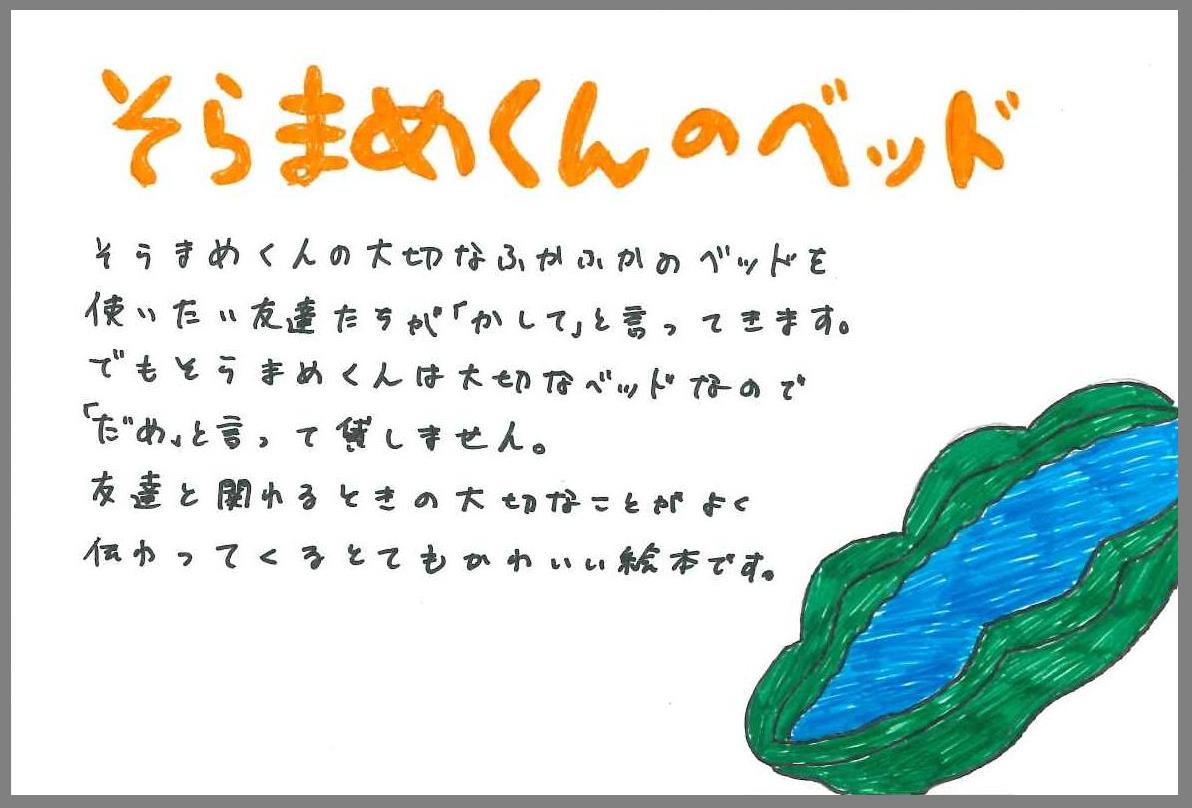 そらまめくんのベッド
そらまめくんの大切なふかふかのベッドを
使いたい友達たちが「かして」と言ってきます。
でもそらまめくんは大切なベッドなので
「だめ」と言って貸しません。
友達と関わるときの大切なことがよく
伝わってくるとてもかわいい絵本です。